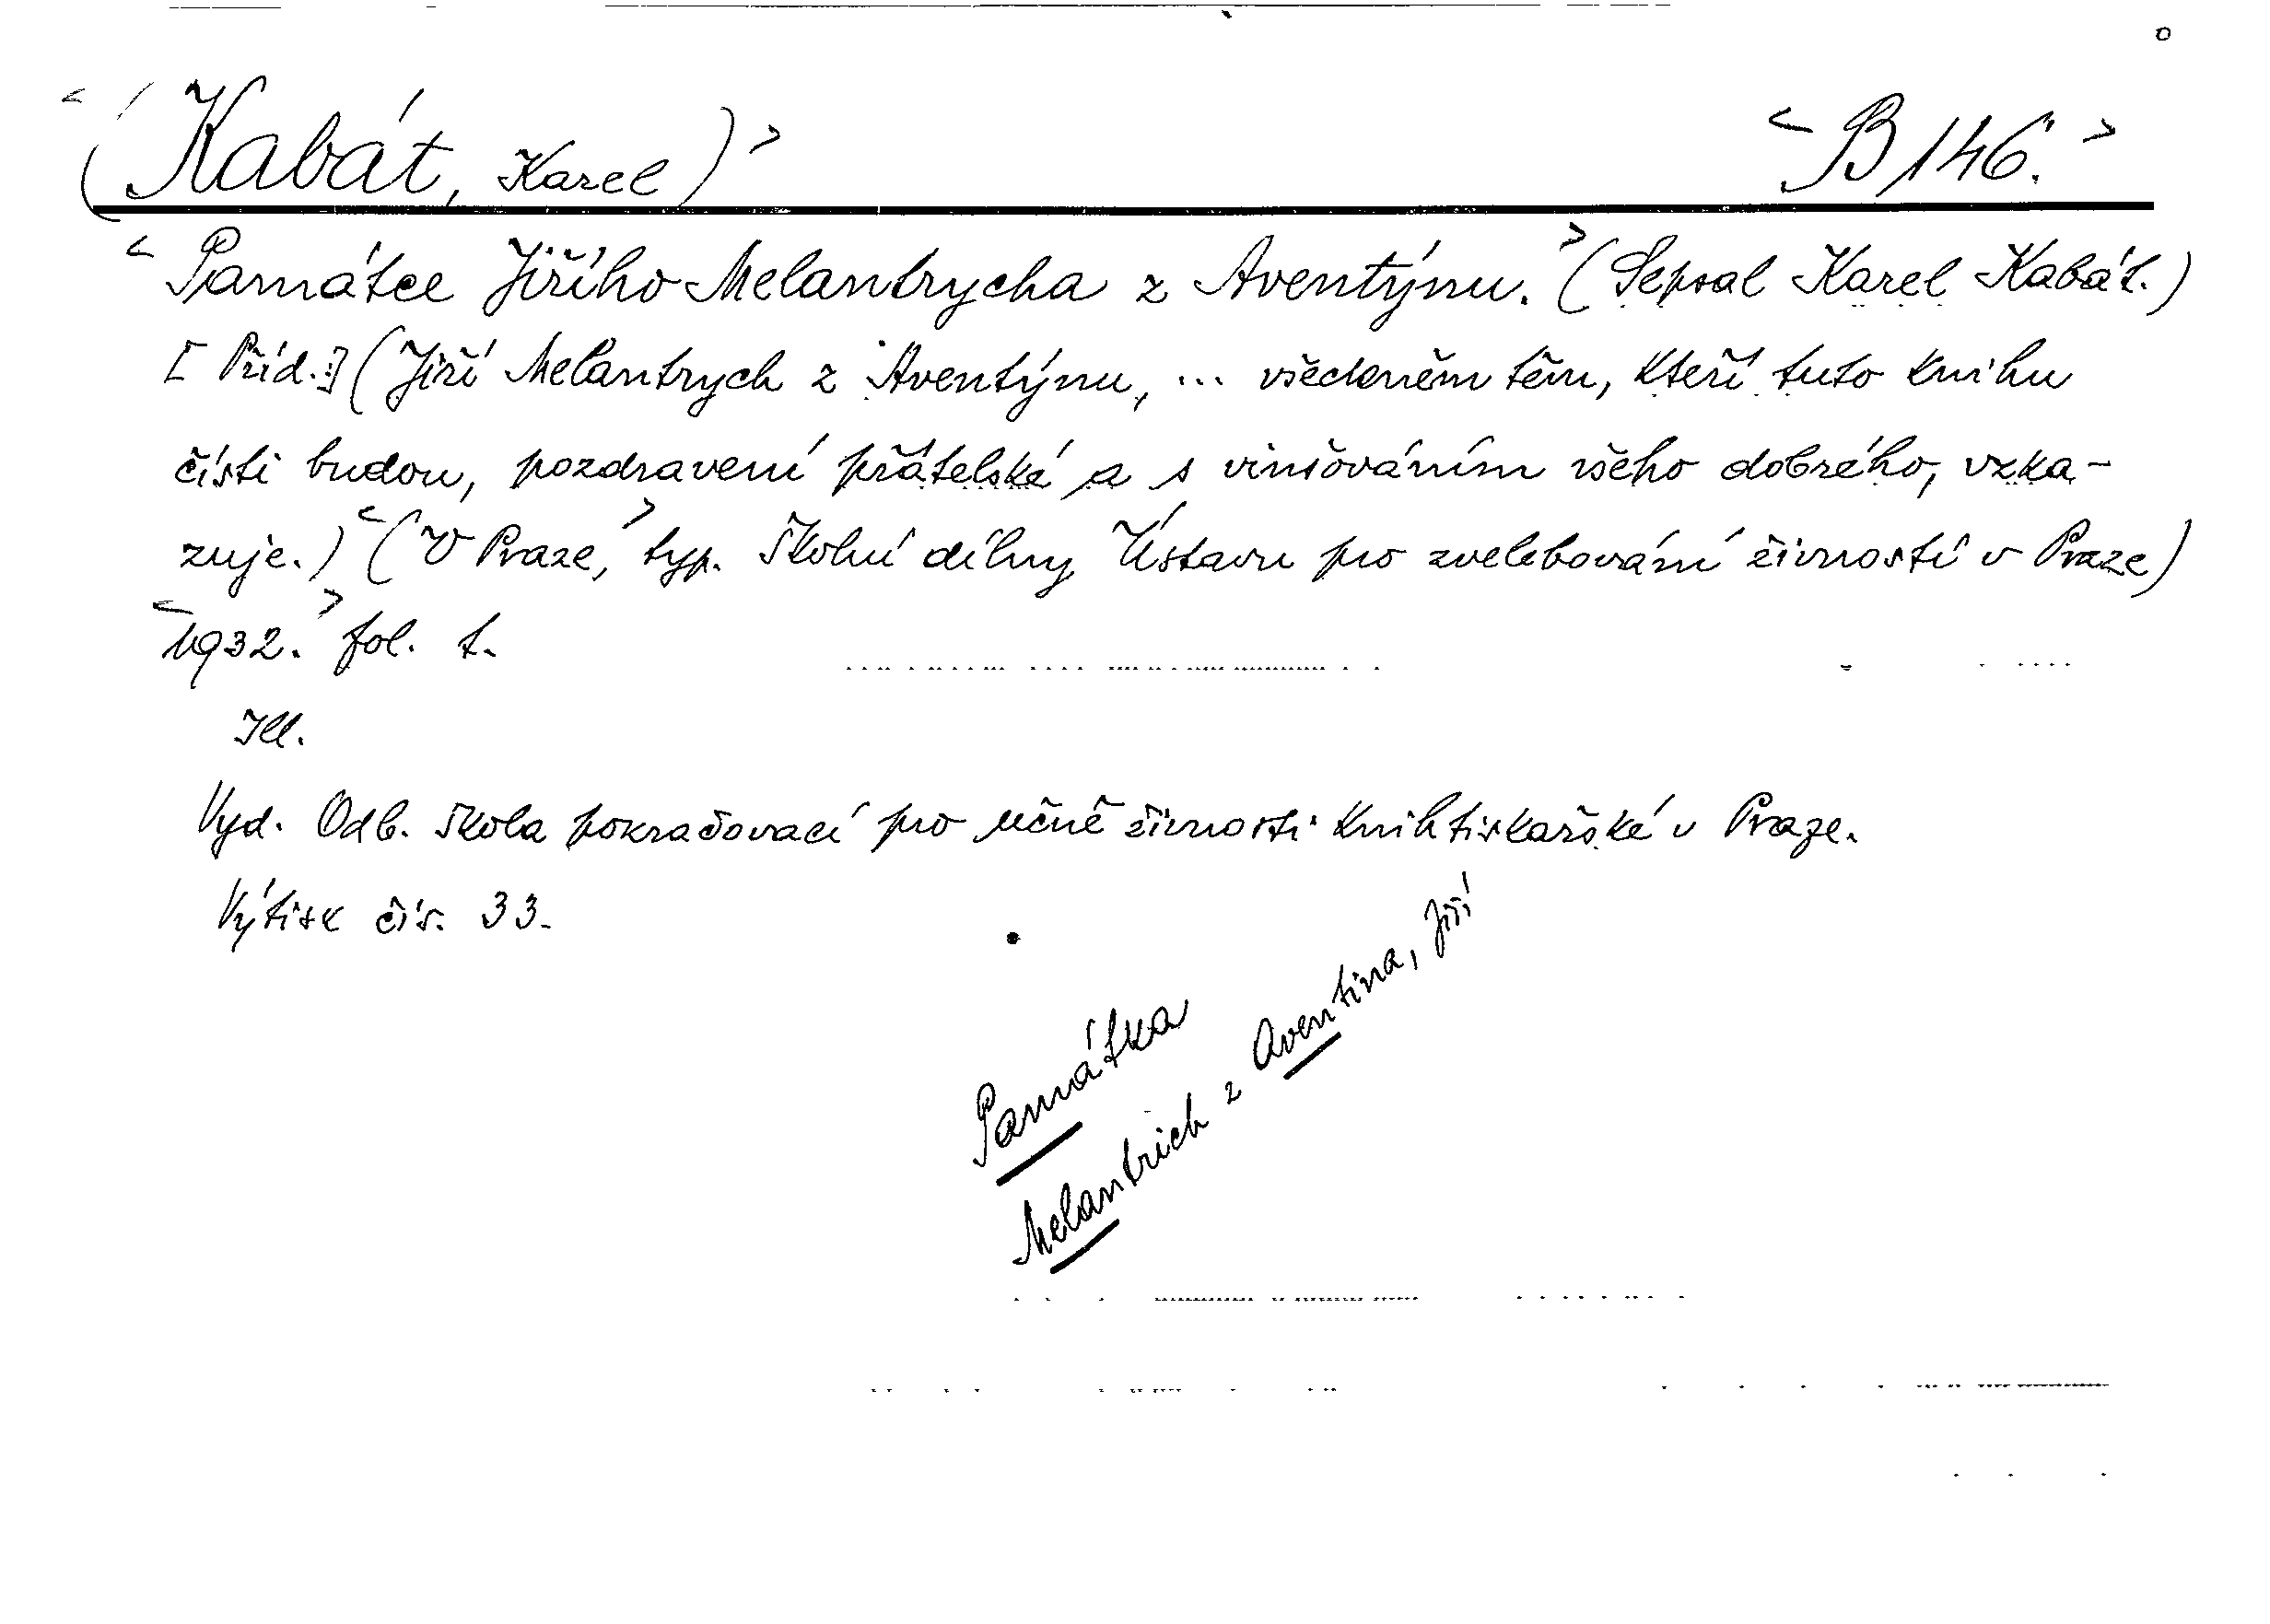 <(Kabát, Karel)> <B 146.>
<Památce Jiřího Melantrycha z Aventýnu.> (Sepsal Karel Kabát.)
[Příd.:] (Jiří Melantrych z Aventýnu, ... všechněm těm, kteří tuto knihu
čísti budou, pozdravení přátelské a s vinšováním všeho dobrého, vzka-
zuje.) <(V Praze,> typ. Školní dílny Ústavu pro zvelebování živností v Praze)
<1932.> fol. t.
Ill.
Vyd. Odb. škola pokračovací pro učně živnosti knihtiskařské v Praze.
Výtisk čís. 33.
Památka
Melantrich z Aventina, Jiří